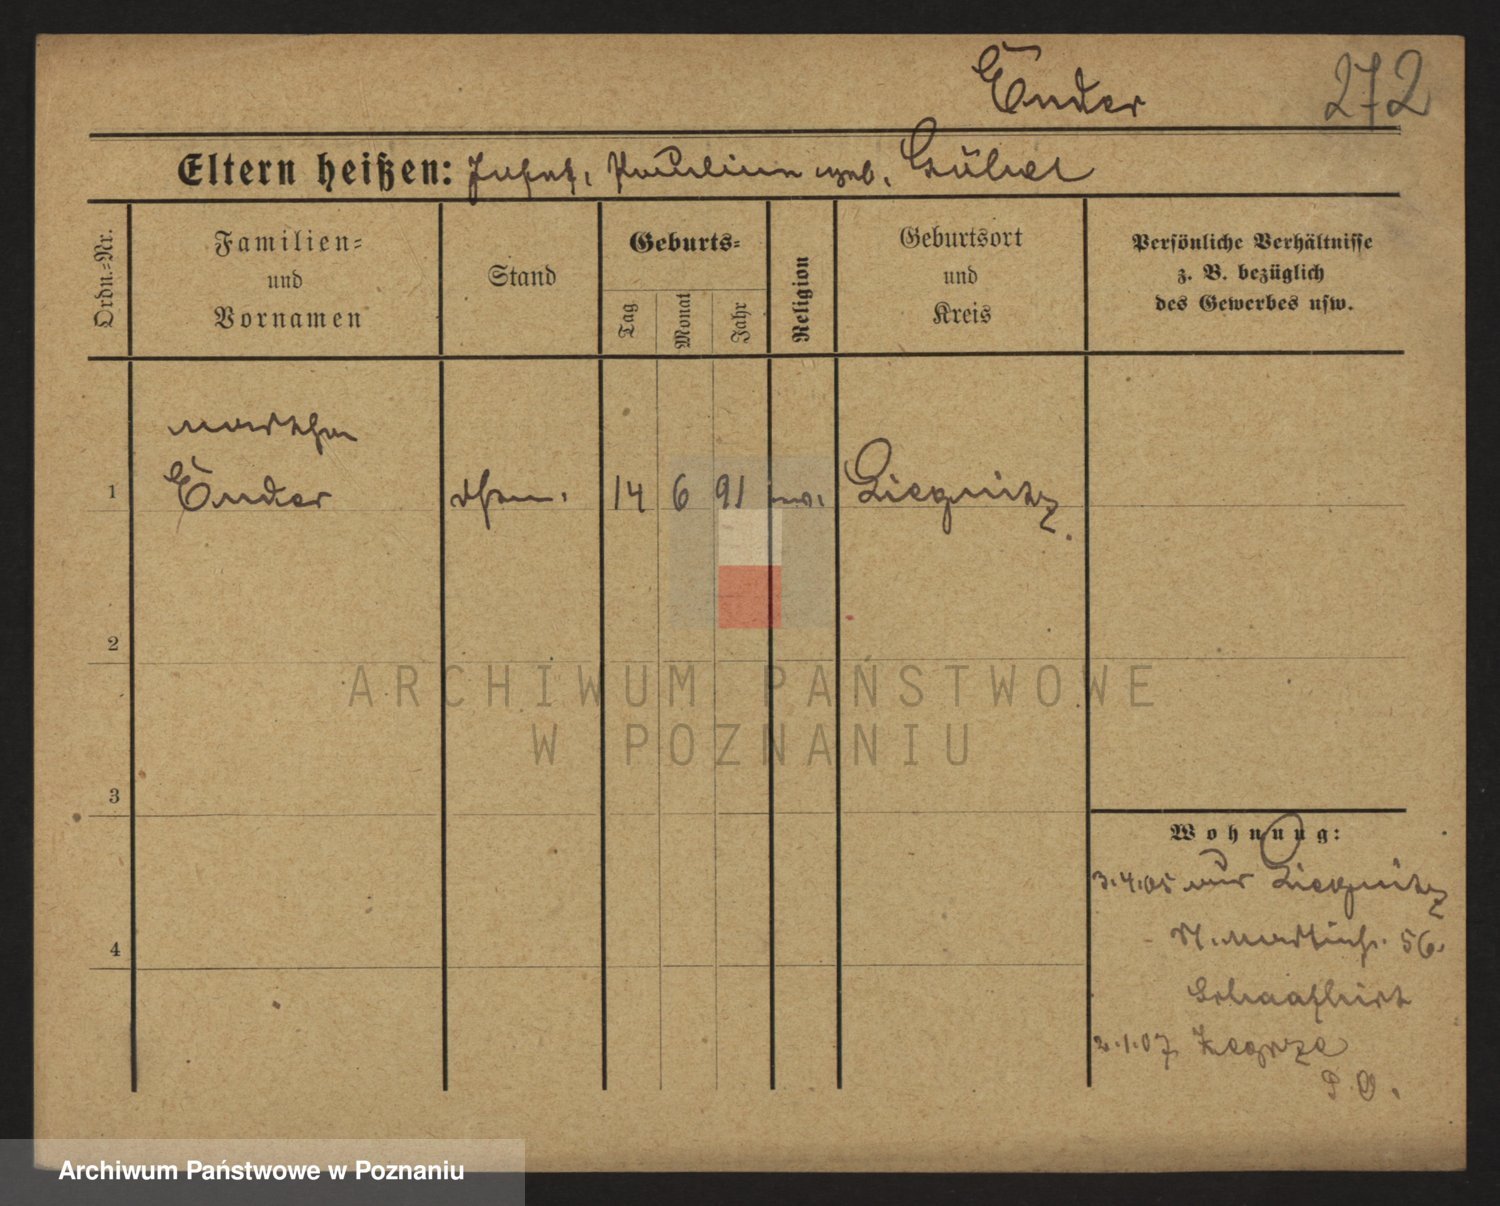 Ender
272
Eltern heißen: Josef, Pauline geb. Gübel
Ordn.=Nr.
Familien=
und
Vornamen
Stand
Geburts=
Tag
Monat
Jahr
Religion
Geburtsort
und
Kreis
Persönliche Verhältnisse
z. B. bezüglich
des Gewerbes usw.
Martha
1 Ender 14 6 91 Liegnitz
2
3
4
Wohnung:
3.4.05 aus Liegnitz
St. Martinstr. 56.
Schaafhirt
2.1.07 Zegrze
P. O.
ARCHIWUM PAŃSTWOWE
W POZNANIU
Archiwum Państwowe w Poznaniu